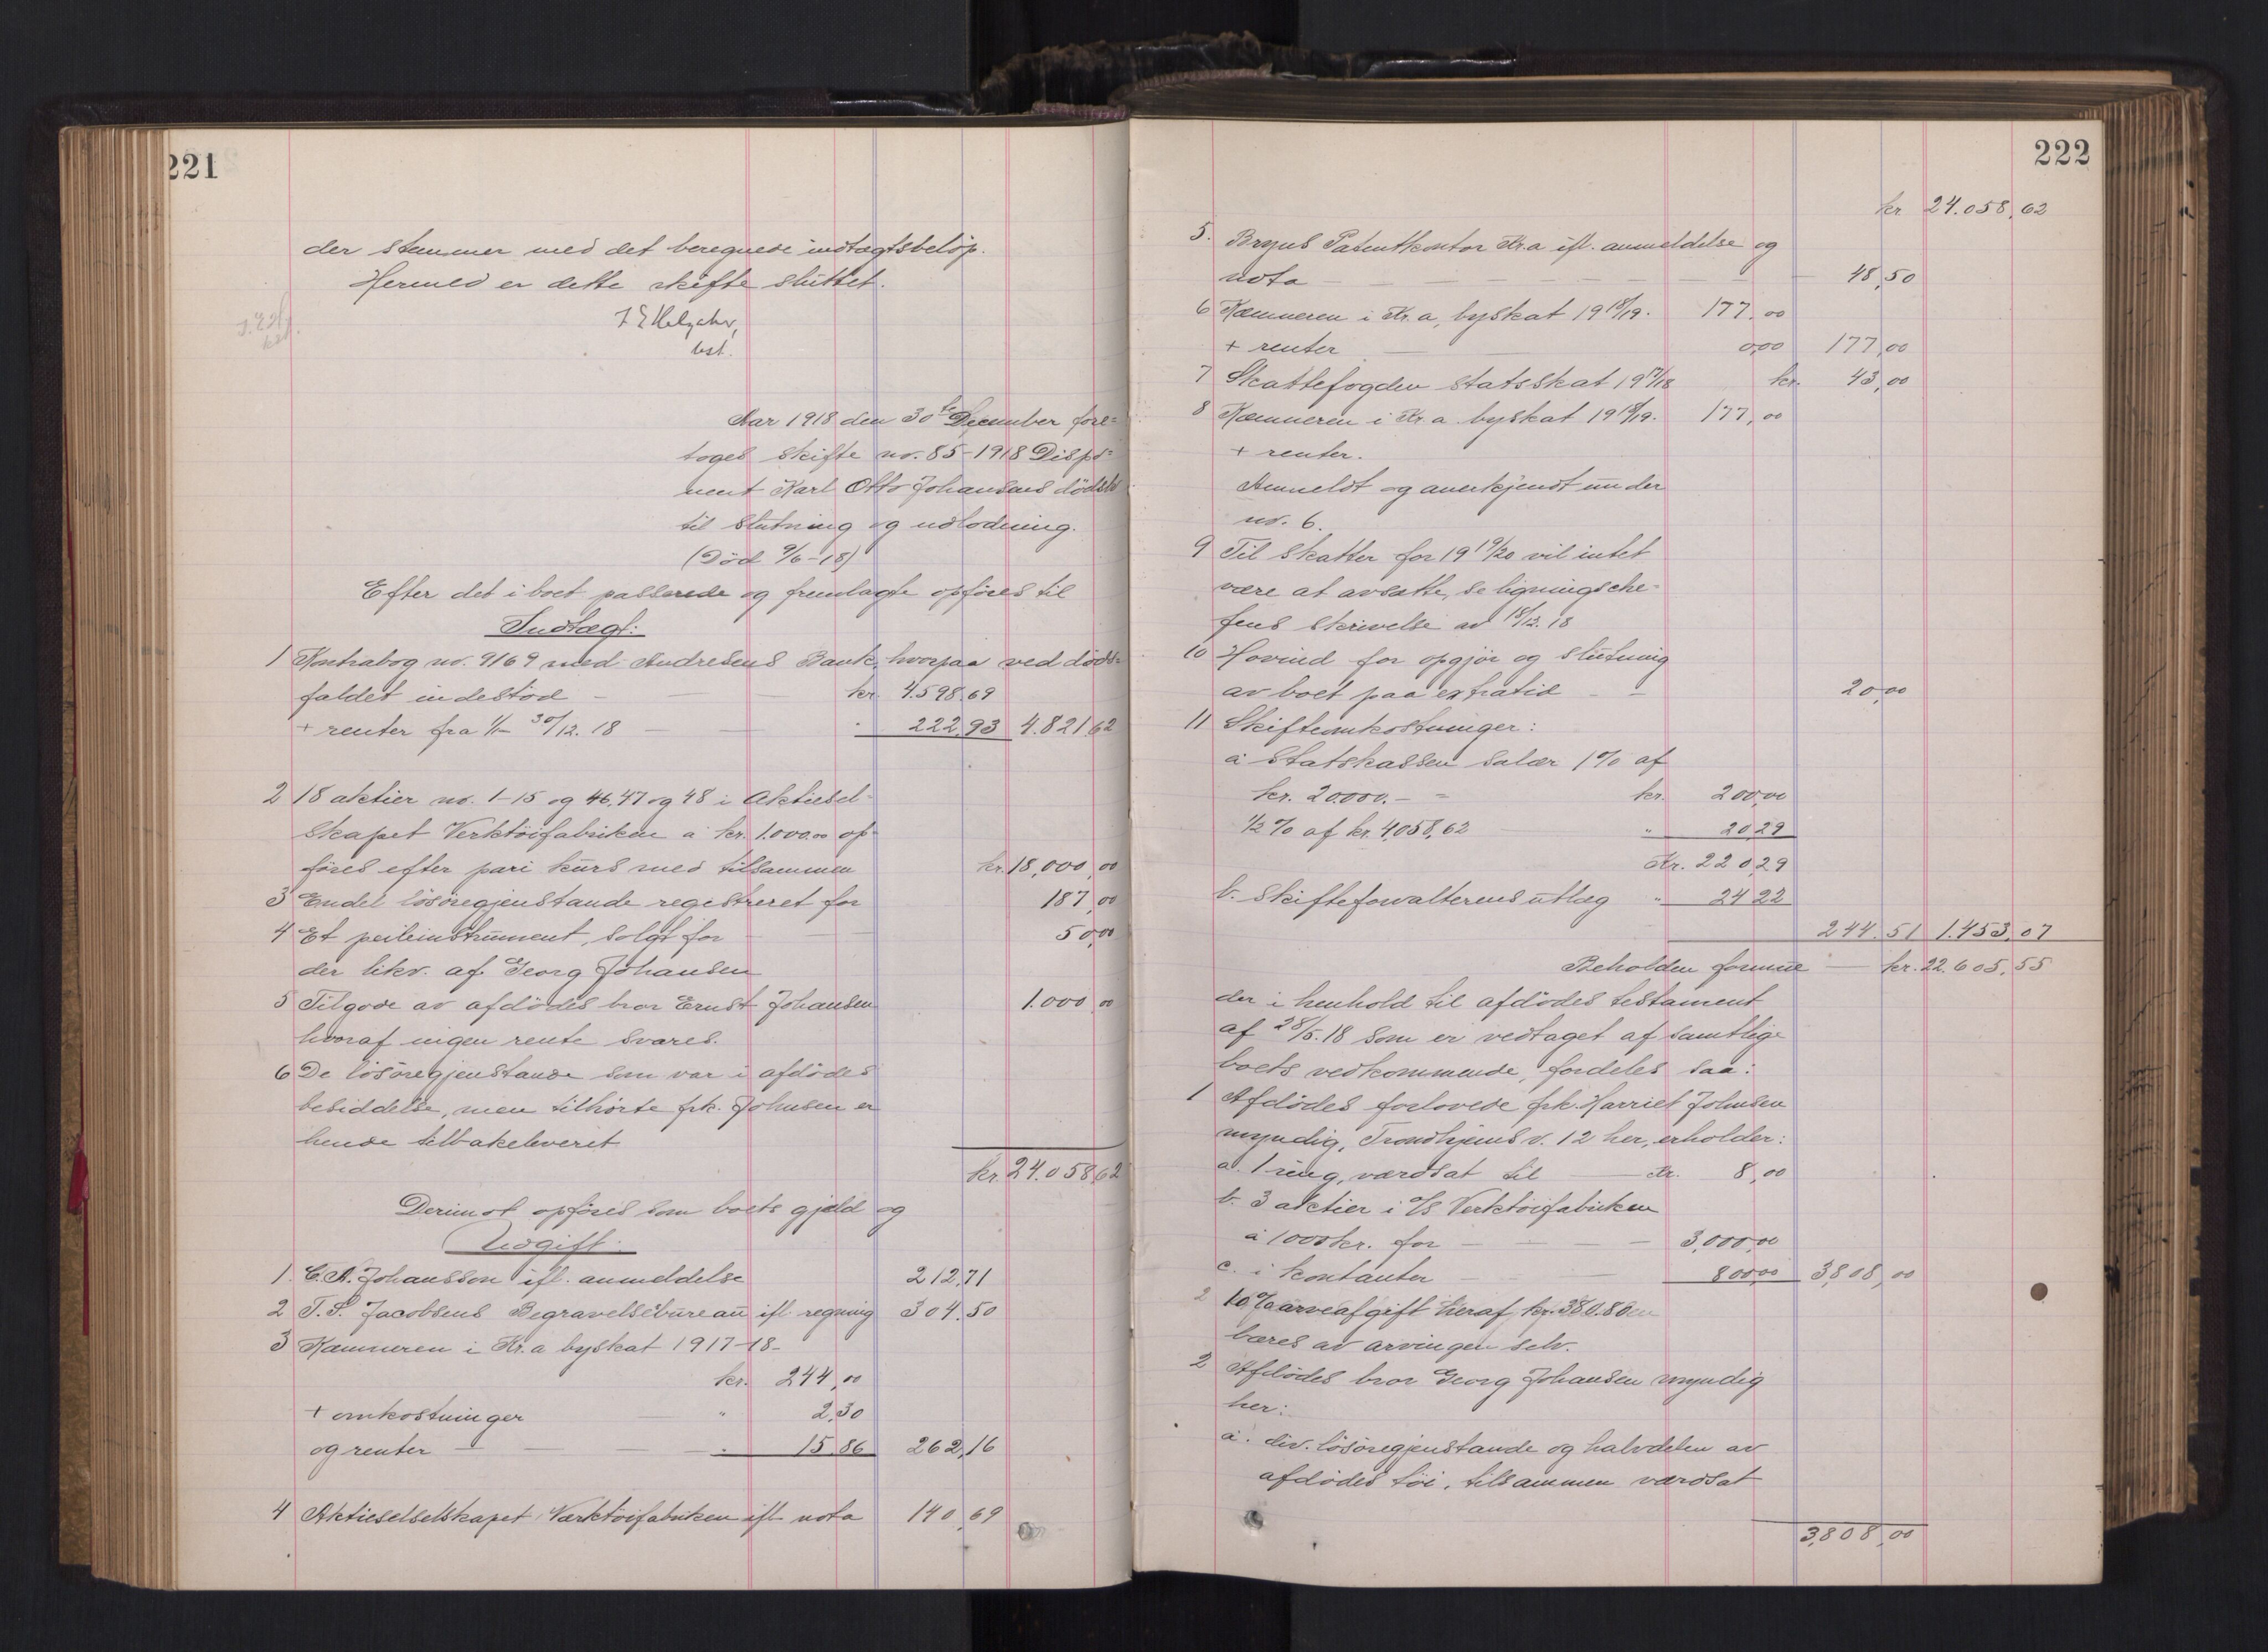 221
der stemmer med det beregnede indtægtsbeløp.
Hermed er dette skifte sluttet.
bst.
Aar 1918 den 30te December fore=
toges skifte no. 85-1918 Dispo=
nent Karl Otto Johansens dødsbo
til slutning og utlodning.
(Død 9/6-18)
Efter det i boet passerede og fremlagte opføres til
Indtægt:
1 Kontrabog no. 9169 med Andresens Bank, hvorpaa ved døds=
faldet indestod - kr. 4.598,69
+ renter fra 1/1- 30/12. 18 - - " 222,93 4.821,62
2 18 aktier no. 1-15 og 46, 47 og 48 i Aktiesel=
skapet Verktøifabriken a kr. 1.000.00 op=
føres efter pari kurs med tilsammen kr. 18,000,00
3 Endel løsøregjenstande registreret for 187,00
4 Et peileinstrument, solgt for 50,00
der likv. af Georg Johansen
5 Tilgode av afdødes bror Ernst Johansen 1.000,00
hvoraf ingen rente svares.
6 De løsøregjenstande som var i afdødes
besiddelse, men tilhørte frk. Johnsen er
hende tilbakeleveret
kr. 24.058,62
Derimot opføres som boets gjæld og
Udgift:
1. C. A. Johansson ifl. anmeldelse 212,71
2 T. S. Jacobsens Begravelsebureau ifl. regning 304.50
3 Kæmneren i Kr.a byskat 1917-18-
kr. 244,00
+ omkostninger " 2,30
og renter - - - " 15.86 262,16
4 Aktieselselskapet Værktøifabriken ifl. nota 140,69
222
kr. 24.058,62
5. Bryns Patentkontor Kr.a ifl. anmeldelse og
nota - - - - - - - 48,50
6 Kæmneren i Kr.a, byskat 1918/19. 177.00
+ renter - - 0,00 177,00
7 Skattefogden statsskat 1917/18 kr. 43,00
8 Kæmneren i Kr.a byskat 1918/19. 177,00
+ renter.
Anmeldt og anerkjendt under
no. 6.
9 Til skatter for 1919/20 vil intet
være at avsætte, se ligningsche=
fens skrivelse av 18/12. 18
10 Hovind for opgjør og slutning
av boet paa extratid - - 20,00
11 Skifteomkostninger:
a Statskassen salær 1% af
kr. 20.000.- = kr. 200,00
1/2 % af kr. 4,058,62 " 20,29
Kr. 220,29
b. Skifteforvalterens utlæg " 24 22
244.51 1.453,07
Beholden formue - kr. 22.605,55
der i henhold til afdødes testament
af 28/5. 18 som er vedtaget af samtlige
boets vedkommende, fordeles saa:
1 Afdødes forlovede frk. Harriet Johnsen
myndig, Trondhjems v. 12 her, erholder:
a. 1 ring, værdsat til - Kr. 8,00
b. 3 aktier i A/S Verktøifabriken
à 1000 kr. for - - - 3,000,00
c. i kontanter - - 800,00 3,808,00
2 10 % arveafgift heraf kr. 380.80
bæres av arvingen selv.
2 Afdødes bror Georg Johansen myndig
her:
a. div. løsøregjenstande og halvdelen av
afdødes tøi, tilsammen værdsat
3,808,00